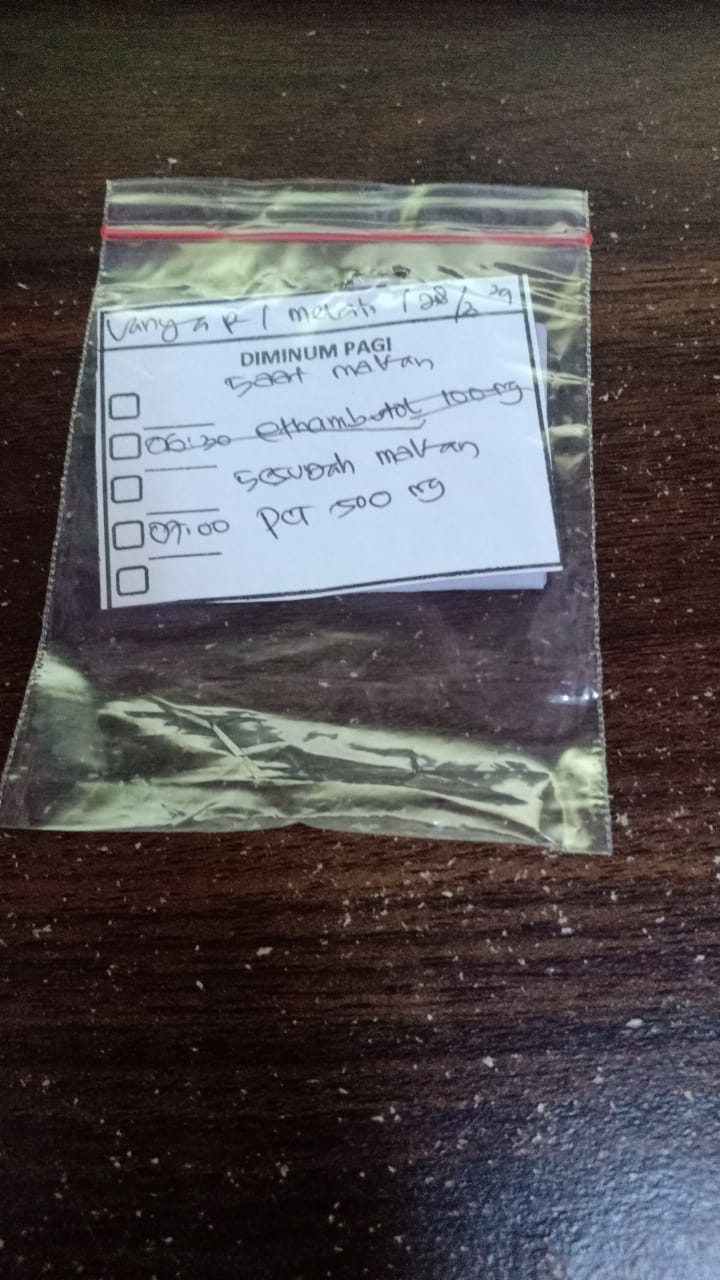 Vany a P / melati / 28/2 29
DIMINUM PAGI
saat makan
06:30 ethambutol 100 mg
sesudah makan
07.00 PCT 500 mg